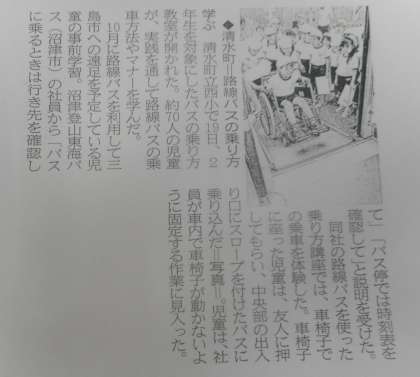 ◆清水町／路線バスの乗り方
学ぶ　清水町立西小で19日、2
年生を対象にしたバスの乗り方
教室が開かれた。約70人の児童
が、実践を通して路線バスの乗
車方法やマナーを学んだ。
10月に路線バスを利用して三
島市への遠足を予定している児
童の事前学習。沼津登山東海バ
ス（沼津市）の社員から「バス
に乗るときは行き先を確認し
て」「バス停では時刻表を
確認して」と説明を受けた。
同社の路線バスを使った
乗り方講座では、車椅子で
の乗車を体験した。車椅子
に座った児童は、友人に押
してもらい、中央部の出入
り口にスロープを付けたバスに
乗り込んだ＝写真＝。児童は、社
員が車内で車椅子が動かないよ
うに固定する作業に見入った。